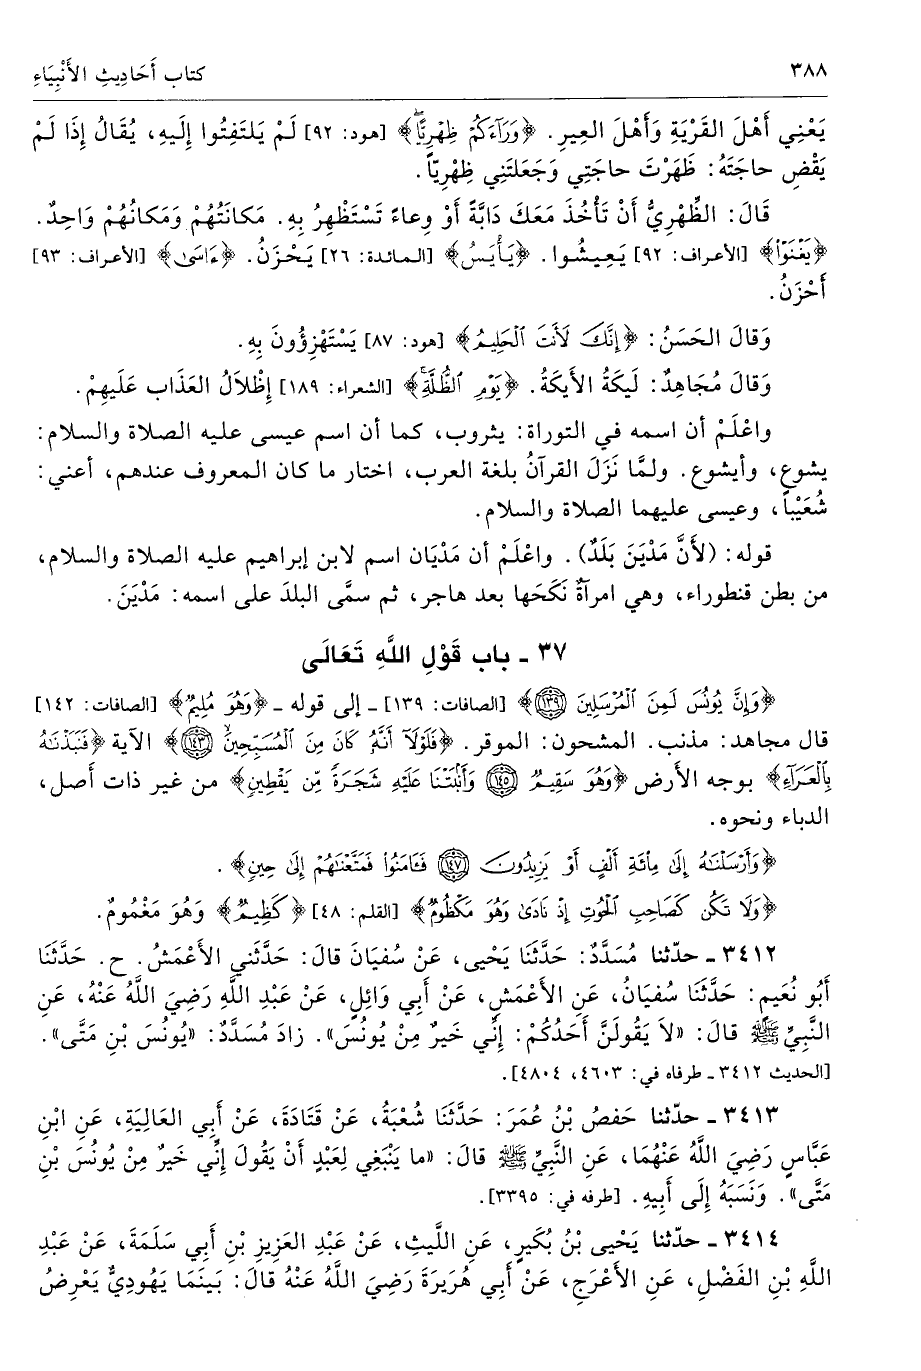 ٣٨٨ كتاب أَحَادِيثِ الأَنْبِيَاءِ
يَعْنِي أَهْلَ القَرْيَةِ وَأَهْلَ العِيرِ. ﴿وَرَآءَكُمْ ظِهْرِيًّا﴾ [هود: ٩٢] لَمْ يَلتَفِتُوا إِلَيهِ، يُقَالُ إِذَا لَمْ
يَقْضِ حاجَتَهُ: ظَهَرْتَ حاجَتِي وَجَعَلتَنِي ظِهْرِيّاً.
قَالَ: الظِّهْرِيُّ أَنْ تَأْخُذَ مَعَكَ دَابَّةً أَوْ وِعاءً تَسْتَظْهِرُ بِهِ. مَكانَتُهُمْ وَمَكانُهُمْ وَاحِدٌ.
﴿يَغْنَوْا﴾ [الأعراف: ٩٢] يَعِيشُوا. ﴿يَأْيَسُ﴾ [المائدة: ٢٦] يَحْزَنُ. ﴿ءَاسَى﴾ [الأعراف: ٩٣]
أَحْزَنُ.
وَقالَ الحَسَنُ: ﴿إِنَّكَ لَأَنتَ ٱلْحَلِيمُ﴾ [هود: ٨٧] يَسْتَهْزِؤُونَ بِهِ.
وَقالَ مُجَاهِدٌ: لَيكَةُ الأَيكَةُ. ﴿يَوْمِ ٱلظُّلَّةِ﴾ [الشعراء: ١٨٩] إِظْلاَلُ العَذَابِ عَلَيهِمْ.
واعْلَمْ أن اسمه في التوراة: يثروب، كما أن اسم عيسى عليه الصلاة والسلام:
يشوع، وأيشوع. ولمَّا نَزَلَ القرآنُ بلغة العرب، اختار ما كان المعروف عندهم، أعني:
شُعَيْباً، وعيسى عليهما الصلاة والسلام.
قوله: (لأَنَّ مَدْيَنَ بَلَدٌ). واعْلَمْ أن مَدْيَان اسم لابن إبراهيم عليه الصلاة والسلام،
من بطن قنطوراء، وهي امرآةٌ نَكَحَها بعد هاجر، ثم سمَّى البلدَ على اسمه: مَدْيَنَ.
٣٧ ـ باب قَوْلِ اللَّهِ تَعَالَى
﴿وَإِنَّ يُونُسَ لَمِنَ ٱلْمُرْسَلِينَ ١٣٩﴾ [الصافات: ١٣٩] ـ إلى قوله ـ ﴿وَهُوَ مُلِيمٌ﴾ [الصافات: ١٤٢]
قال مجاهد: مذنب. المشحون: الموقر. ﴿فَلَوْلَآ أَنَّهُۥ كَانَ مِنَ ٱلْمُسَبِّحِينَ ١٤٣﴾ الآية ﴿فَنَبَذْنَٰهُ
بِٱلْعَرَآءِ﴾ بوجه الأرض ﴿وَهُوَ سَقِيمٌ ١٤٥ وَأَنۢبَتْنَا عَلَيْهِ شَجَرَةً مِّن يَقْطِينٍ﴾ من غير ذات أصل،
الدباء ونحوه.
﴿وَأَرْسَلْنَٰهُ إِلَىٰ مِا۟ئَةِ أَلْفٍ أَوْ يَزِيدُونَ ١٤٧ فَـَٔامَنُوا۟ فَمَتَّعْنَٰهُمْ إِلَىٰ حِينٍ﴾.
﴿وَلَا تَكُن كَصَاحِبِ ٱلْحُوتِ إِذْ نَادَىٰ وَهُوَ مَكْظُومٌ﴾ [القلم: ٤٨] ﴿كَظِيمٌ﴾ وَهُوَ مَغْمُومٌ.
٣٤١٢ ـ حدّثنا مُسَدَّدٌ: حَدَّثَنَا يَحْيى، عَنْ سُفيَانَ قالَ: حَدَّثَني الأَعْمَشُ. ح. حَدَّثَنَا
أَبُو نُعَيمٍ: حَدَّثَنَا سُفيَانُ، عَنِ الأَعْمَشِ، عَنْ أَبِي وَائِلٍ، عَنْ عَبْدِ اللَّهِ رَضِيَ اللَّهُ عَنْهُ، عَنِ
النَّبِيِّ ﷺ قالَ: «لاَ يَقُولَنَّ أَحَدُكُمْ: إِنِّي خَيرٌ مِنْ يُونُسَ». زادَ مُسَدَّدٌ: «يُونُسَ بْنِ مَتَّى».
[الحديث ٣٤١٢ ـ طرفاه في: ٤٦٠٣، ٤٨٠٤].
٣٤١٣ ـ حدّثنا حَفصُ بْنُ عُمَرَ: حَدَّثَنَا شُعْبَةُ، عَنْ قَتَادَةَ، عَنْ أَبِي العَالِيَةِ، عَنِ ابْنِ
عَبَّاسٍ رَضِيَ اللَّهُ عَنْهُمَا، عَنِ النَّبِيِّ ﷺ قالَ: «ما يَنْبَغِي لِعَبْدٍ أَنْ يَقُولَ إِنِّي خَيرٌ مِنْ يُونُسَ بْنِ
مَتَّى». وَنَسَبَهُ إِلَى أَبِيهِ. [طرفه في: ٣٣٩٥].
٣٤١٤ ـ حدّثنا يَحْيى بْنُ بُكَيرٍ، عَنِ اللَّيثِ، عَنْ عَبْدِ العَزِيزِ بْنِ أَبِي سَلَمَةَ، عَنْ عَبْدِ
اللَّهِ بْنِ الفَضْلِ، عَنِ الأَعْرَجِ، عَنْ أَبِي هُرَيرَةَ رَضِيَ اللَّهُ عَنْهُ قالَ: بَينَمَا يَهُودِيٌّ يَعْرِضُ